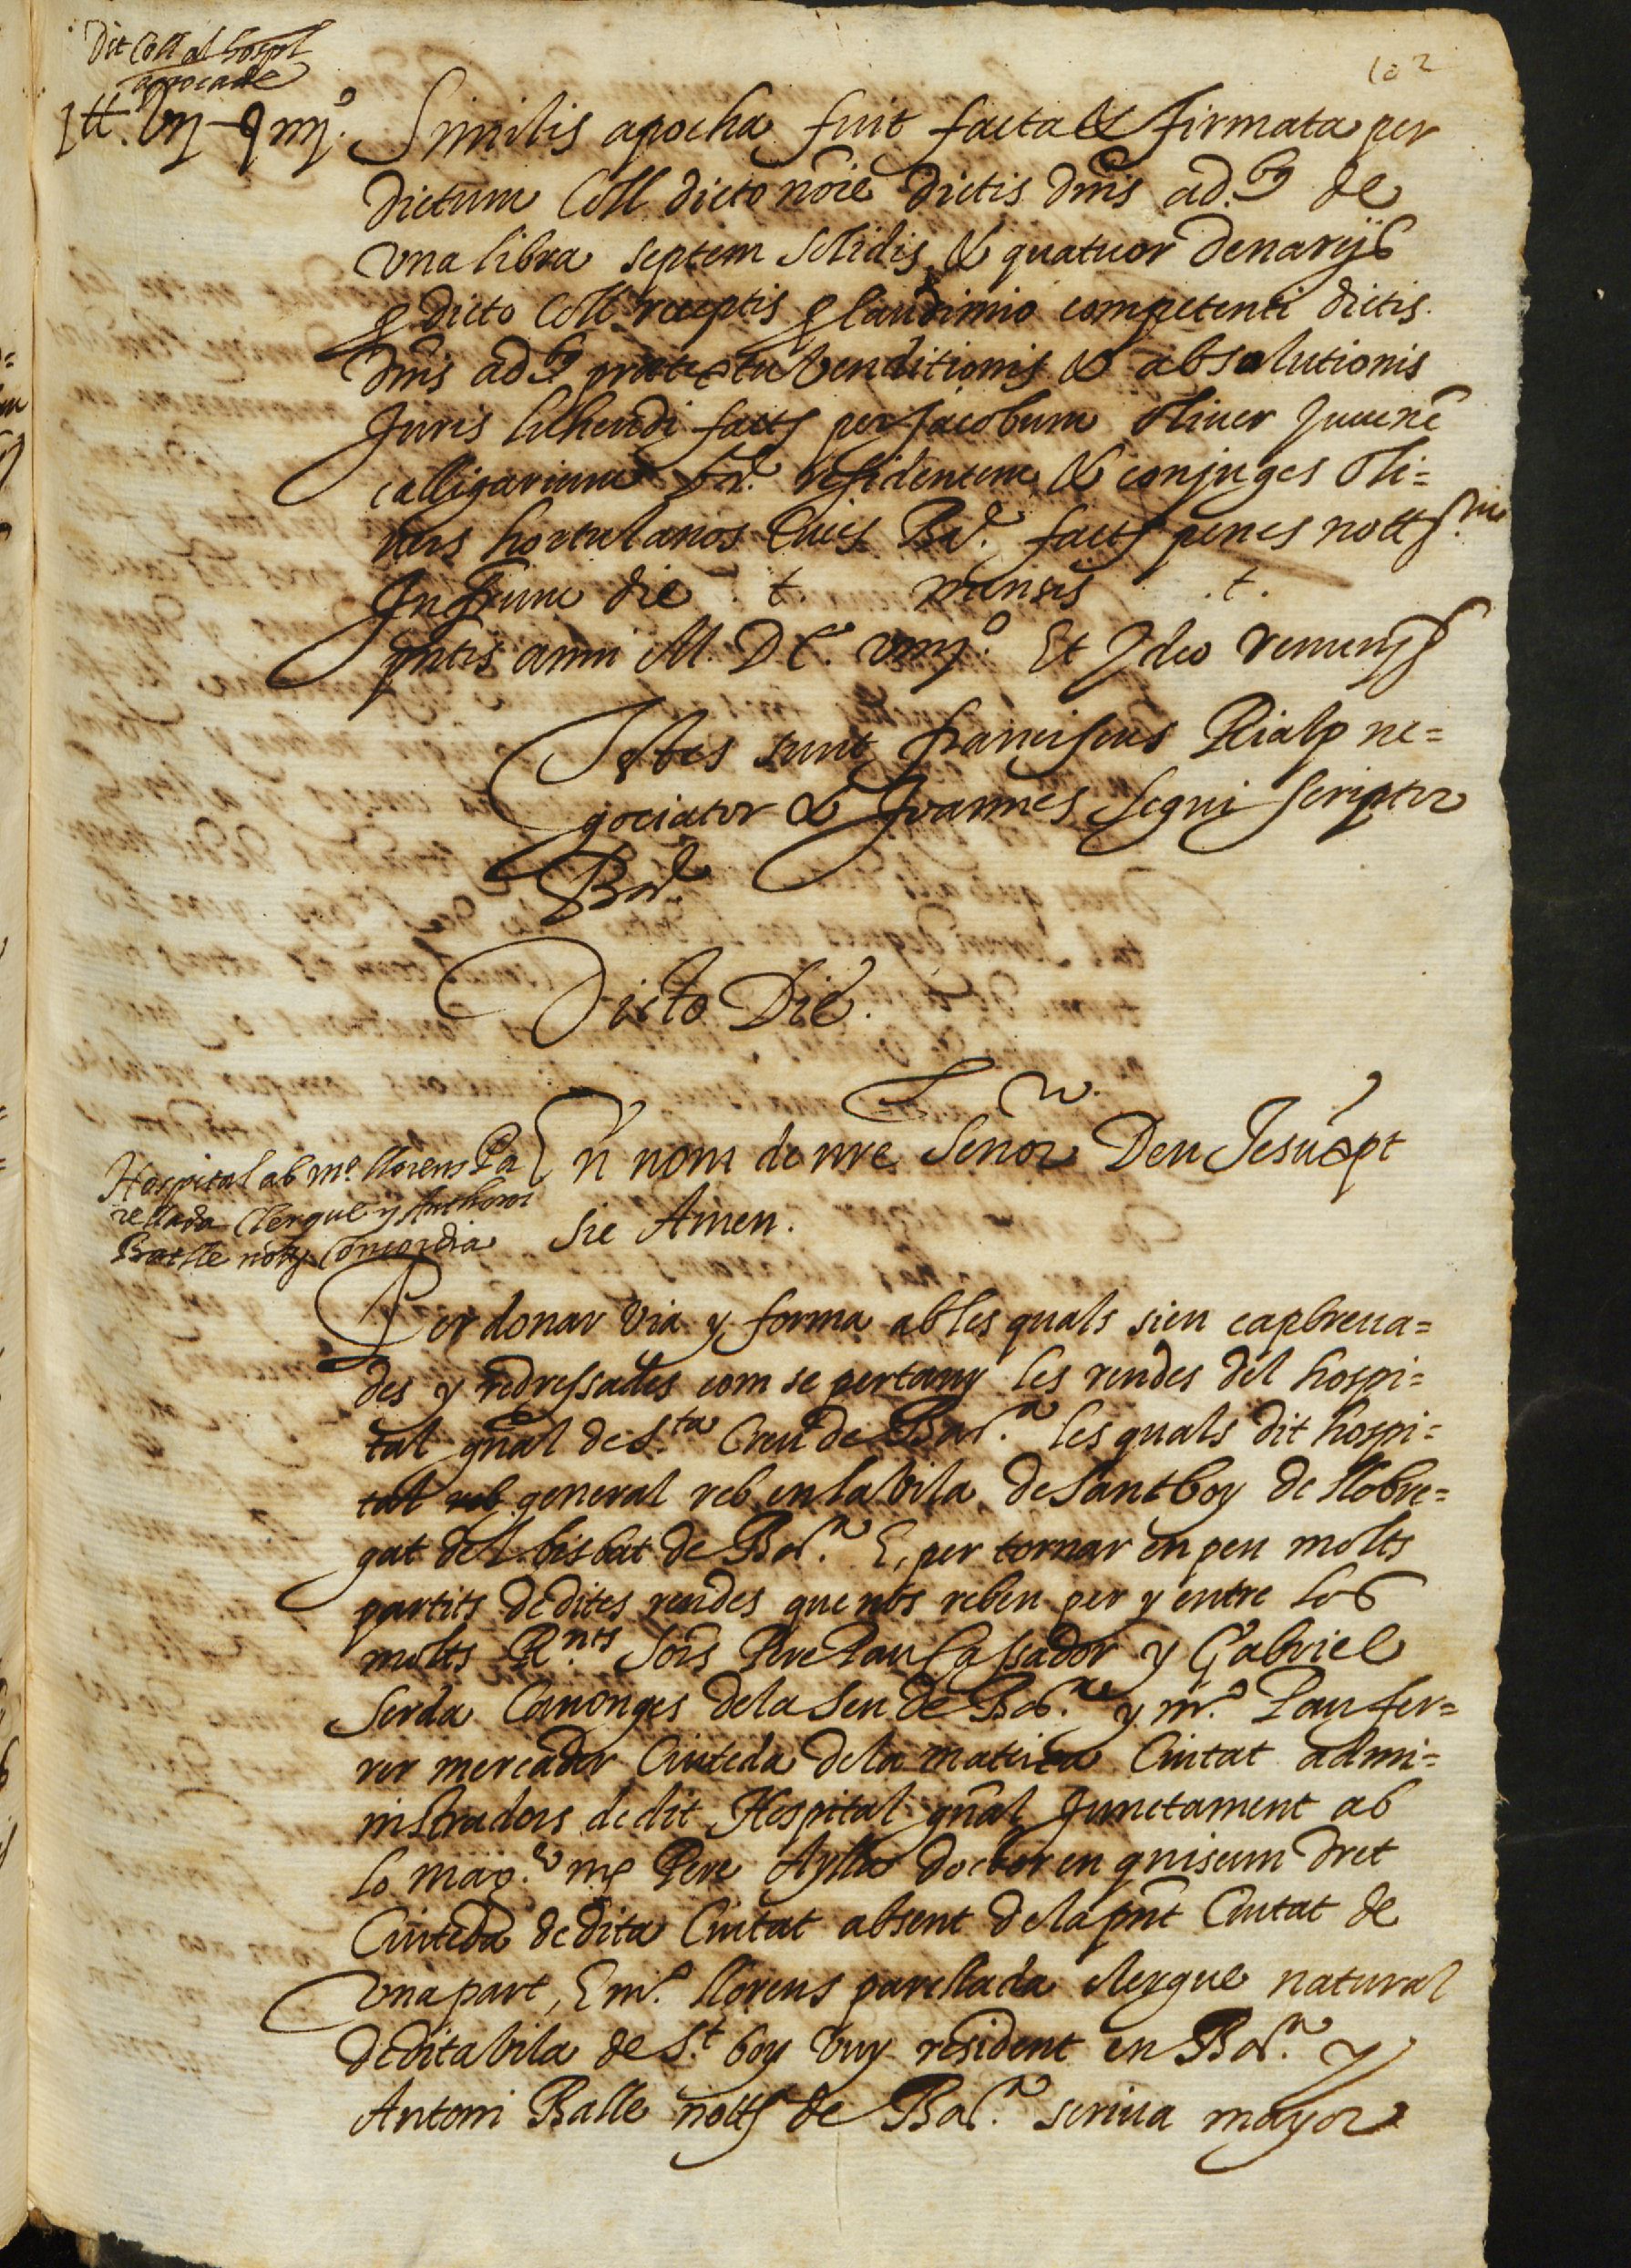 102
Dit Coll al hospl
apocade
1 tt. vii s iiii.º Similis apocha fuit facta & firmata per
dictum Coll dicto nõie dictis dnis ad.bg de
vna libra septem solidis & quatuor denarijs
p dicto Coll receptis p laudimio competenti dictis
dnis ad.bg pretextu venditionis & absolutionis
Juris luhendi factʃ per Jacobum oliuer Juuenẽ
calligarium Bñ. residentem & conjuges Oli=
uers hortulanos Ciues Bñ. factʃ penes nottʃ.
Infrum die . t. mensis . t.
pntis anni M. DC. viiij.º Et Ideo renunʃ
Testes sunt franciscus Rialp ne=
gociator & Joannes Segui scriptor
Bñe
Dicto Die.
Hospital ab mº. llorens Pa
rellada Clergue y Anthoni
Batlle notʃ Concordia
En nom de nre Senor Deu Jesucxpt
sie Amen.
Per donar via y forma ab les quals sien capbreua=
des y redressades com se pertany les rendes del hospi=
tal gñal de S.ta Creu de Bar.na les quals dit hospi=
tal reb general reb en la vila de Santboy de llobre=
gat del bisbat de Bar.na E per tornar en peu molts
partits de dites rendes que nos reben per y entre los
molts R.nts Sors Pere Pau Cassador y Gabriel
Serda Canonges de la Seu de Bar.na y m.º Pau fer=
rer mercader Ciuteda de la mateixa Ciutat admi=
nistradors de dit Hospital gñal Junctament ab
lo mag.ch mº Pere Aylla doctor en quiscun dret
Ciuteda de dita Ciutat absent de la pnt Ciutat de
vna part, E m.º llorens parellada clergue natural
de dita vila de S.t boy vuy resident en Bar.na y
Antoni Batlle nottʃ de Bar.na scriua mayor